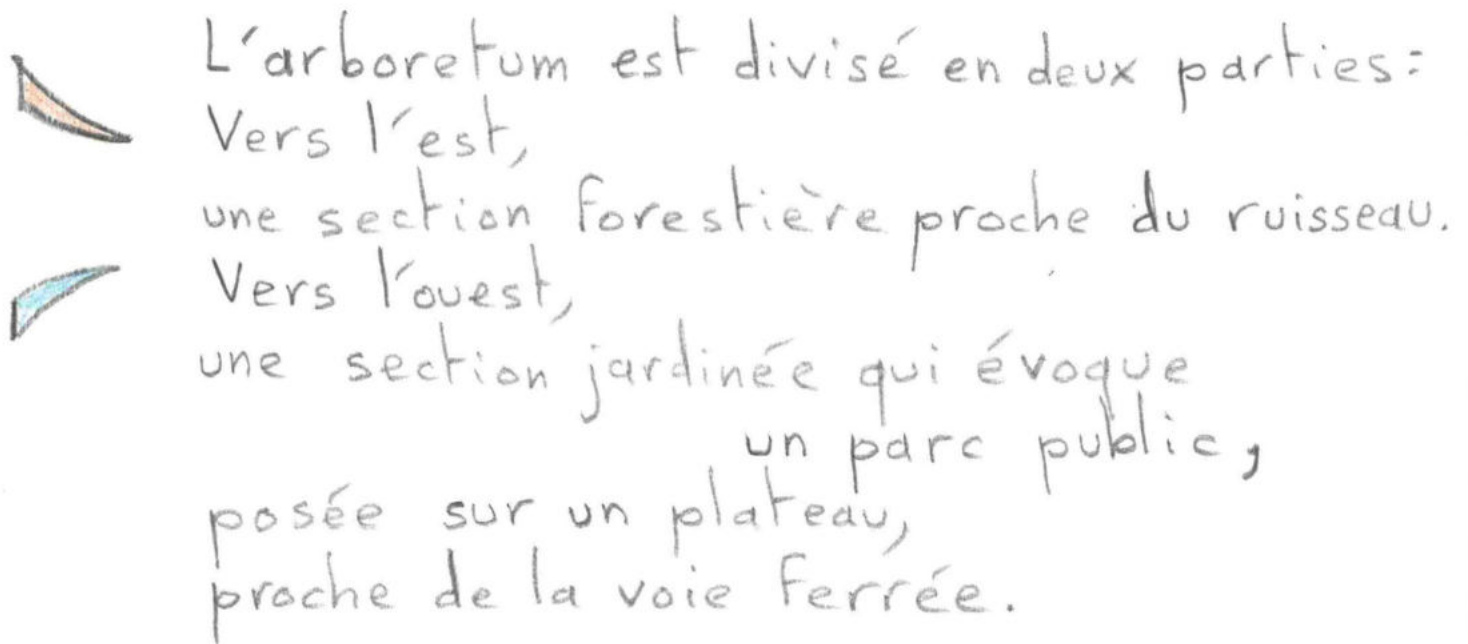 L'arboretum est divisé en deux parties:
Vers l'est,
une section forestière proche du ruisseau.
Vers l'ouest,
une section jardinée qui évoque
un parc public,
posée sur un plateau,
proche de la voie ferrée.